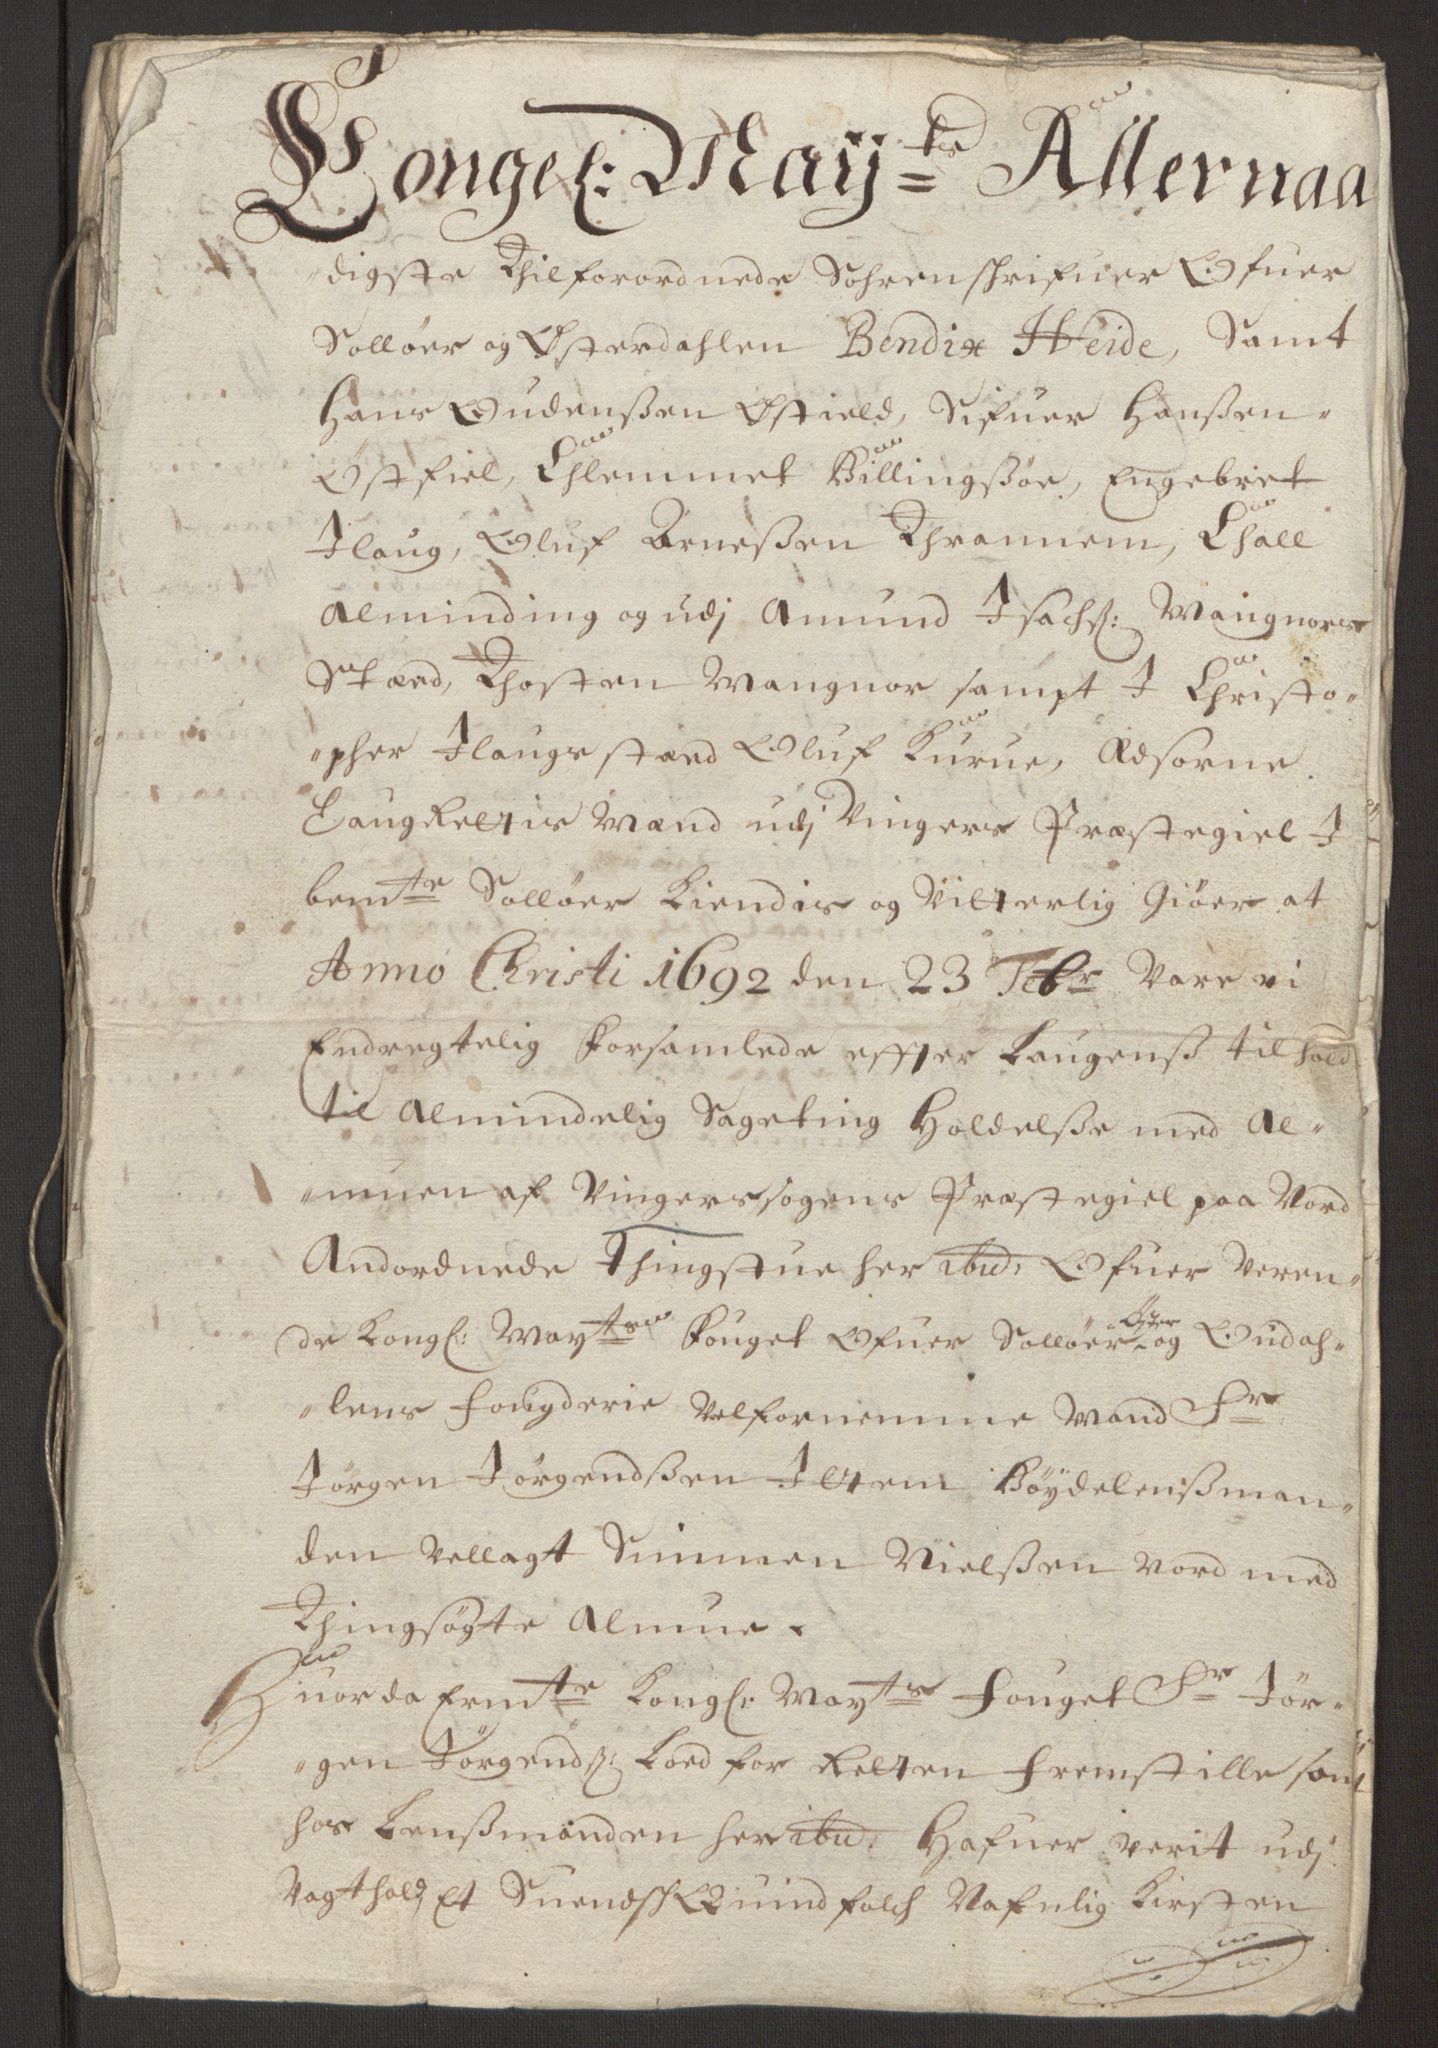 Kongel: Maÿ=ts Allernaa
digste Thilforordnede Sohrenschrifuer Ofuer
Solløer og Østerdahlen Bendix Heide, Samt
Hans Oudenßen Østield, Sifuer Hanßen
Østfiel, Chlemmet Billingßøe, Engebret
Ilaug, Oluf Arneßen Thrannem, Chall
Alminding og udj Amund Isachs: Wangnors
Stæd, Thosten Wangnor sampt I Christo-
pher Ilaugs stæd Oluf Kurue, Edsorne
LaugRettis Mænd udj Vingers Præstegiel I
bemte Solløer Kiendis og Vitterlig Giører at
Anno Christi 1692 den 23 Febr Vare vi
Endregtelig Forsamlede effter Laugenß tilhold
til Almindelig Sageting Holdelße med Al-
muen af Vingerssogens Præstegiel paa Vord
Andordnede Thingstue her ibid: Ofuer Veren-
de Kongl: Mayts Fouget Ofuer Solløer Øster og Oudah-
lens Fougderie Velfornemme Mand Sr
Jørgen Jørgendßen Item Bøÿdelenßman-
den Vellagt Simmen Nielßen Vord med
Thingsøgte Almue.
Huor da Ermte Kongl: Mayts Fouget Sr Jør-
gen Jørgends: Loed for Retten Fremstille som
hos Lenßmanden her ibid: Hafuer verit udj
Vagthold, Et Suendsk Quindfolch Nafnlig Kirsten